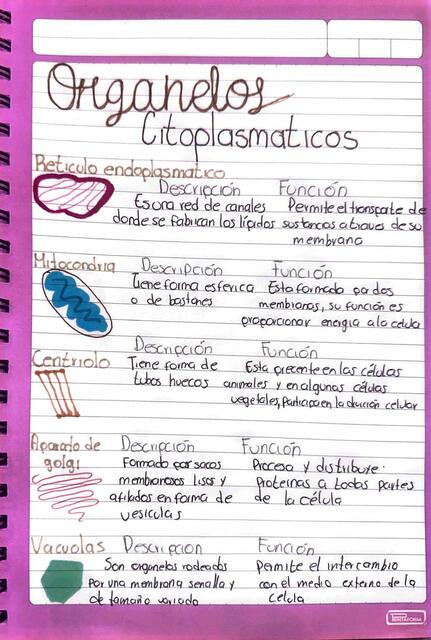 Organelos
Citoplasmaticos
Reticulo endoplasmatico
Descripción Función
Es una red de canales Permite el transporte de
donde se fabrican los lípidos sustancias a traves de su
membrana
Mitocondria Descripción Función
Tiene forma esferica Esta formado por dos
o de bastones membranas, su función es
proporcionar energia a la celula
Centriolo Descripción Función
Tiene forma de Esta precente en las células
tubos huecos animales y en algunas células
vegetales, participa en la división celular
Aparato de Descripción Función
golgi Formado por sacos Procesa y distribuye
membranosos lisos y Proteinas a todas partes
afilados en forma de de la célula
vesiculas
Vacuolas Descripcion Función
Son organelos rodeados Permite el intercambio
Por una membrana sencilla y con el medio externo de la
de tamaño variado Celula
PRINTAFORM